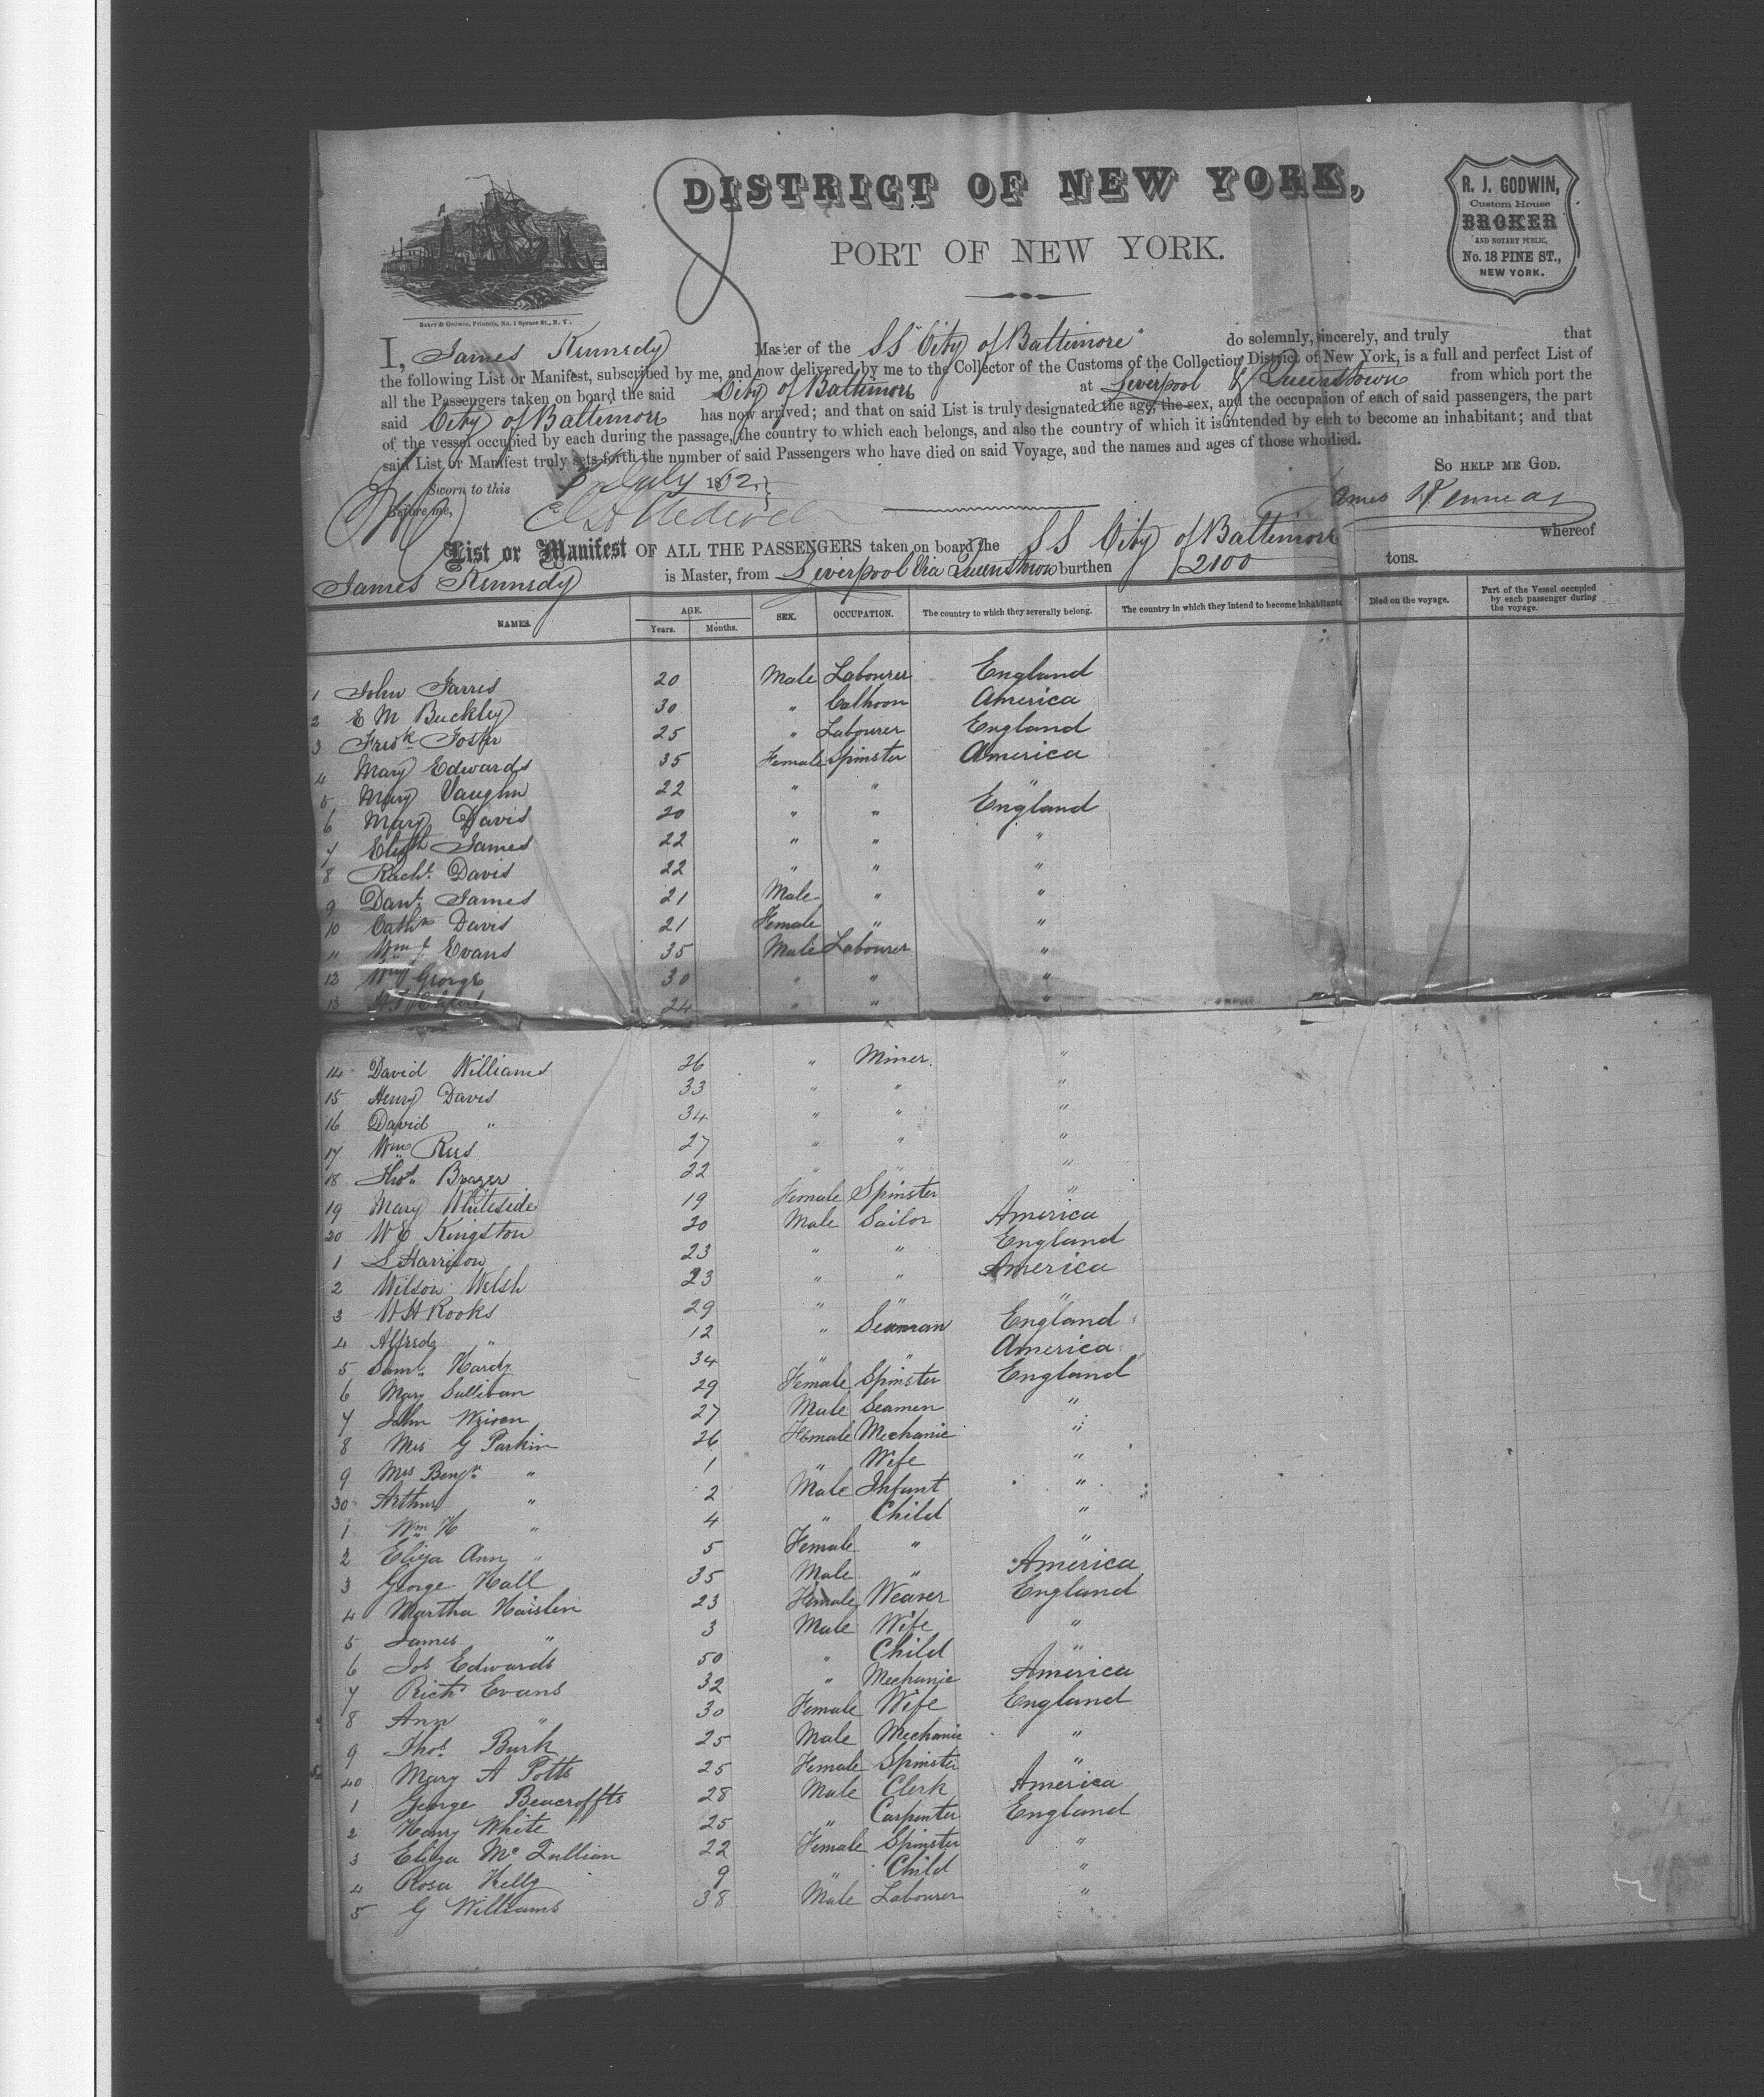 DISTRICT OF NEW YORK,
PORT OF NEW YORK.
R. J. GODWIN,
Custom House
BROKER
AND NOTARY PUBLIC,
No. 18 PINE ST.,
NEW YORK.
Baker & Godwin, Printers, No. 1 Spruce St., N. Y.
I, James Kennedy Master of the SS "City of Baltimore" do solemnly, sincerely, and truly that
the following List or Manifest, subscribed by me, and now delivered by me to the Collector of the Customs of the Collection District of New York, is a full and perfect List of
all the Passengers taken on board the said City of Baltimore at Liverpool & Queenstown from which port the
said City of Baltimore has now arrived; and that on said List is truly designated the age, the sex, and the occupation of each of said passengers, the part
of the vessel occupied by each during the passage, the country to which each belongs, and also the country of which it is intended by each to become an inhabitant; and that
said List or Manifest truly sets forth the number of said Passengers who have died on said Voyage, and the names and ages of those who died.
So HELP ME GOD.
Sworn to this July 1862
Before me,
James Kennedy
List or Manifest OF ALL THE PASSENGERS taken on board the SS City of Baltimore whereof
James Kennedy is Master, from Liverpool Via Queenstown burthen 2100 tons.
NAMES. AGE. Years. Months. SEX. OCCUPATION. The country to which they severally belong. The country in which they intend to become inhabitants Died on the voyage. Part of the Vessel occupied by each passenger during the voyage.
1 John Farris 20 Male Labourer England
2 E M Buckley 30 " Calhoon America
3 Fredk Foster 25 " Labourer England
4 Mary Edwards 35 Female Spinster America
5 Mary Vaughn 22 " " "
6 Mary Davis 20 " " England
7 Elizth James 22 " " "
8 Rachl. Davis 22 " " "
9 Danl. James 21 Male " "
10 Cathn Davis 21 Female " "
11 Wm J Evans 35 Male Labourer "
12 George 30 " " "
13 24 " " "
14 David Williams 26 " Miner "
15 Henry Davis 33 " " "
16 David " 34 " " "
17 Wm Rees 27 " " "
18 Thos. Brazer 22 " " "
19 Mary Whiteside 19 Female Spinster "
20 W E Kingston 20 Male Sailor America
1 S Harrison 23 " " England
2 Wilson Welsh 23 " " America
3 W H Rooks 29 " " "
4 Alfred " 12 " Seaman England
5 Saml. Hardy 34 " " America
6 Mary Sullivan 29 Female Spinster England
7 John 27 Male Seamen "
8 Mrs G Parkin 26 Female Mechanic "
9 Mrs Benjn. " 1 " Wife "
30 Arthur " 2 Male Infant "
1 Wm H " 4 " Child "
2 Eliza Ann " 5 Female " "
3 George Hall 35 Male " America
4 Martha Haislen 23 Female Weaver England
5 James " 3 Male Wife "
6 Jos Edwards 50 " Child "
7 Richd Evans 32 " Mechanic America
8 Ann " 30 Female Wife England
9 Thos. Burk 25 Male Mechanic "
40 Mary A Potts 25 Female Spinster "
1 George Beacroffts 28 Male Clerk America
2 Henry White 25 " Carpenter England
3 Eliza Mc Zullian 22 Female Spinster "
4 Rosa Kelly 9 " Child "
5 G Williams 38 Male Labourer "